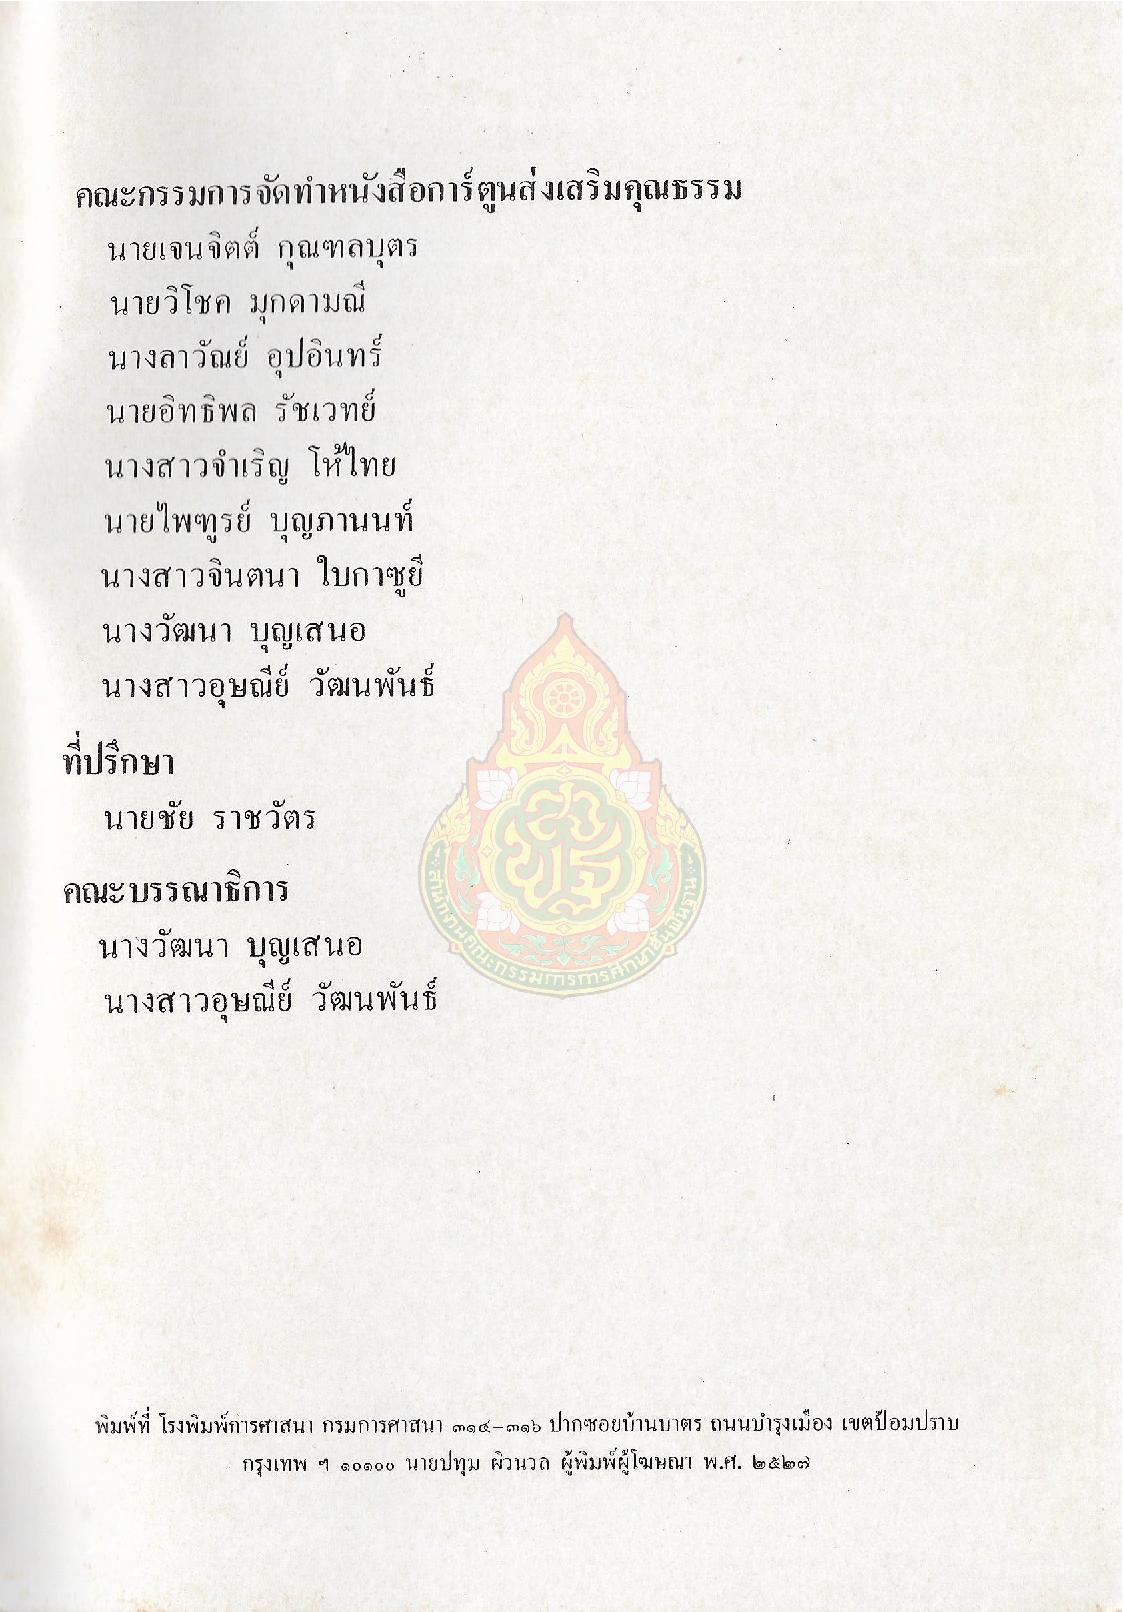 คณะกรรมการจัดทำหนังสือการ์ตูนส่งเสริมคุณธรรม
นายเจนจิตต์ กุณฑลบุตร
นายวิโชค มุกดามณี
นางลาวัณย์ อุปอินทร์
นายอิทธิพล รัชเวทย์
นางสาวจำเริญ โห้ไทย
นายไพฑูรย์ บุญภานนท์
นางสาวจินตนา ใบกาซูยี
นางวัฒนา บุญเสนอ
นางสาวอุษณีย์ วัฒนพันธ์
ที่ปรึกษา
นายชัย ราชวัตร
คณะบรรณาธิการ
นางวัฒนา บุญเสนอ
นางสาวอุษณีย์ วัฒนพันธ์
สพฐ
สำนักงานคณะกรรมการการศึกษาขั้นพื้นฐาน
พิมพ์ที่ โรงพิมพ์การศาสนา กรมการศาสนา ๓๑๔-๓๑๖ ปากซอยบ้านบาตร ถนนบำรุงเมือง เขตป้อมปราบ
กรุงเทพ ฯ ๑๐๑๐๐ นายปทุม ผิวนวล ผู้พิมพ์ผู้โฆษณา พ.ศ. ๒๕๒๗